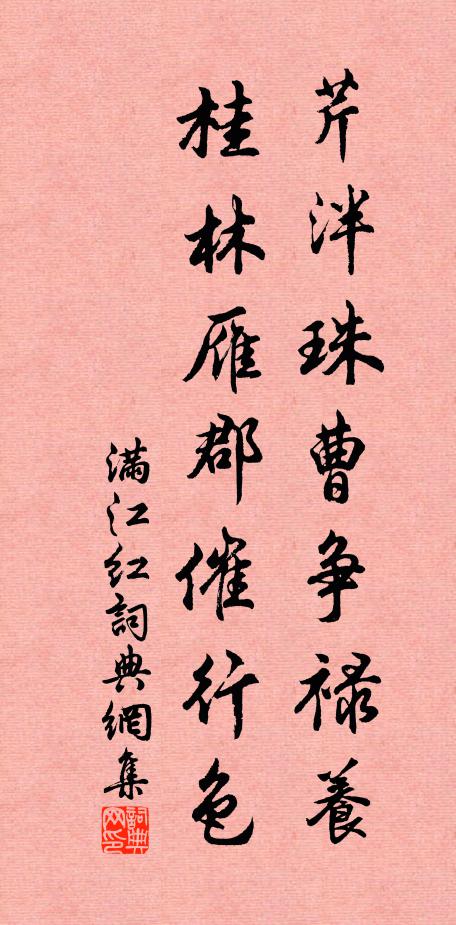 芹泮珠曹争禄養
桂林雁郡催行色
满江红詞典網集
詞典网印